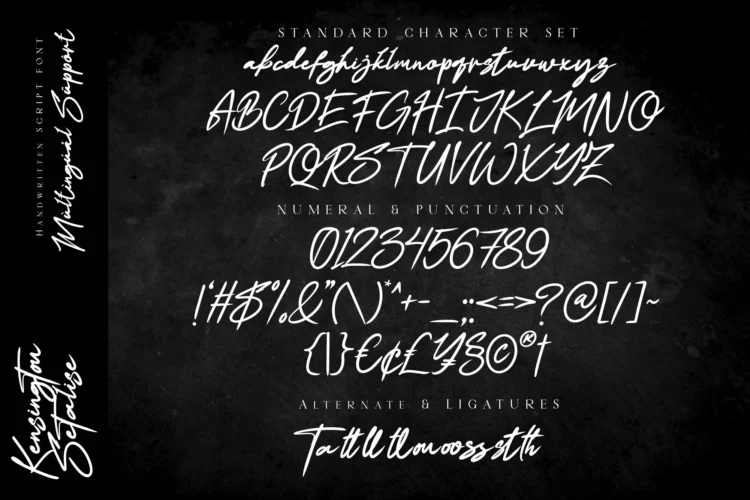 HANDWRITTEN SCRIPT FONT
Multingual Support
Kensington
Setalise
STANDARD CHARACTER SET
abcdefghijklmnopqrstuvwxyz
ABCDEFGHIJKLMNO
PQRSTUVWXYZ
NUMERAL & PUNCTUATION
0123456789
!'#$%&"(\)*^+-_;:,.<=>?@[/]~
{|}€¢£¥§©®†
ALTERNATE & LIGATURES